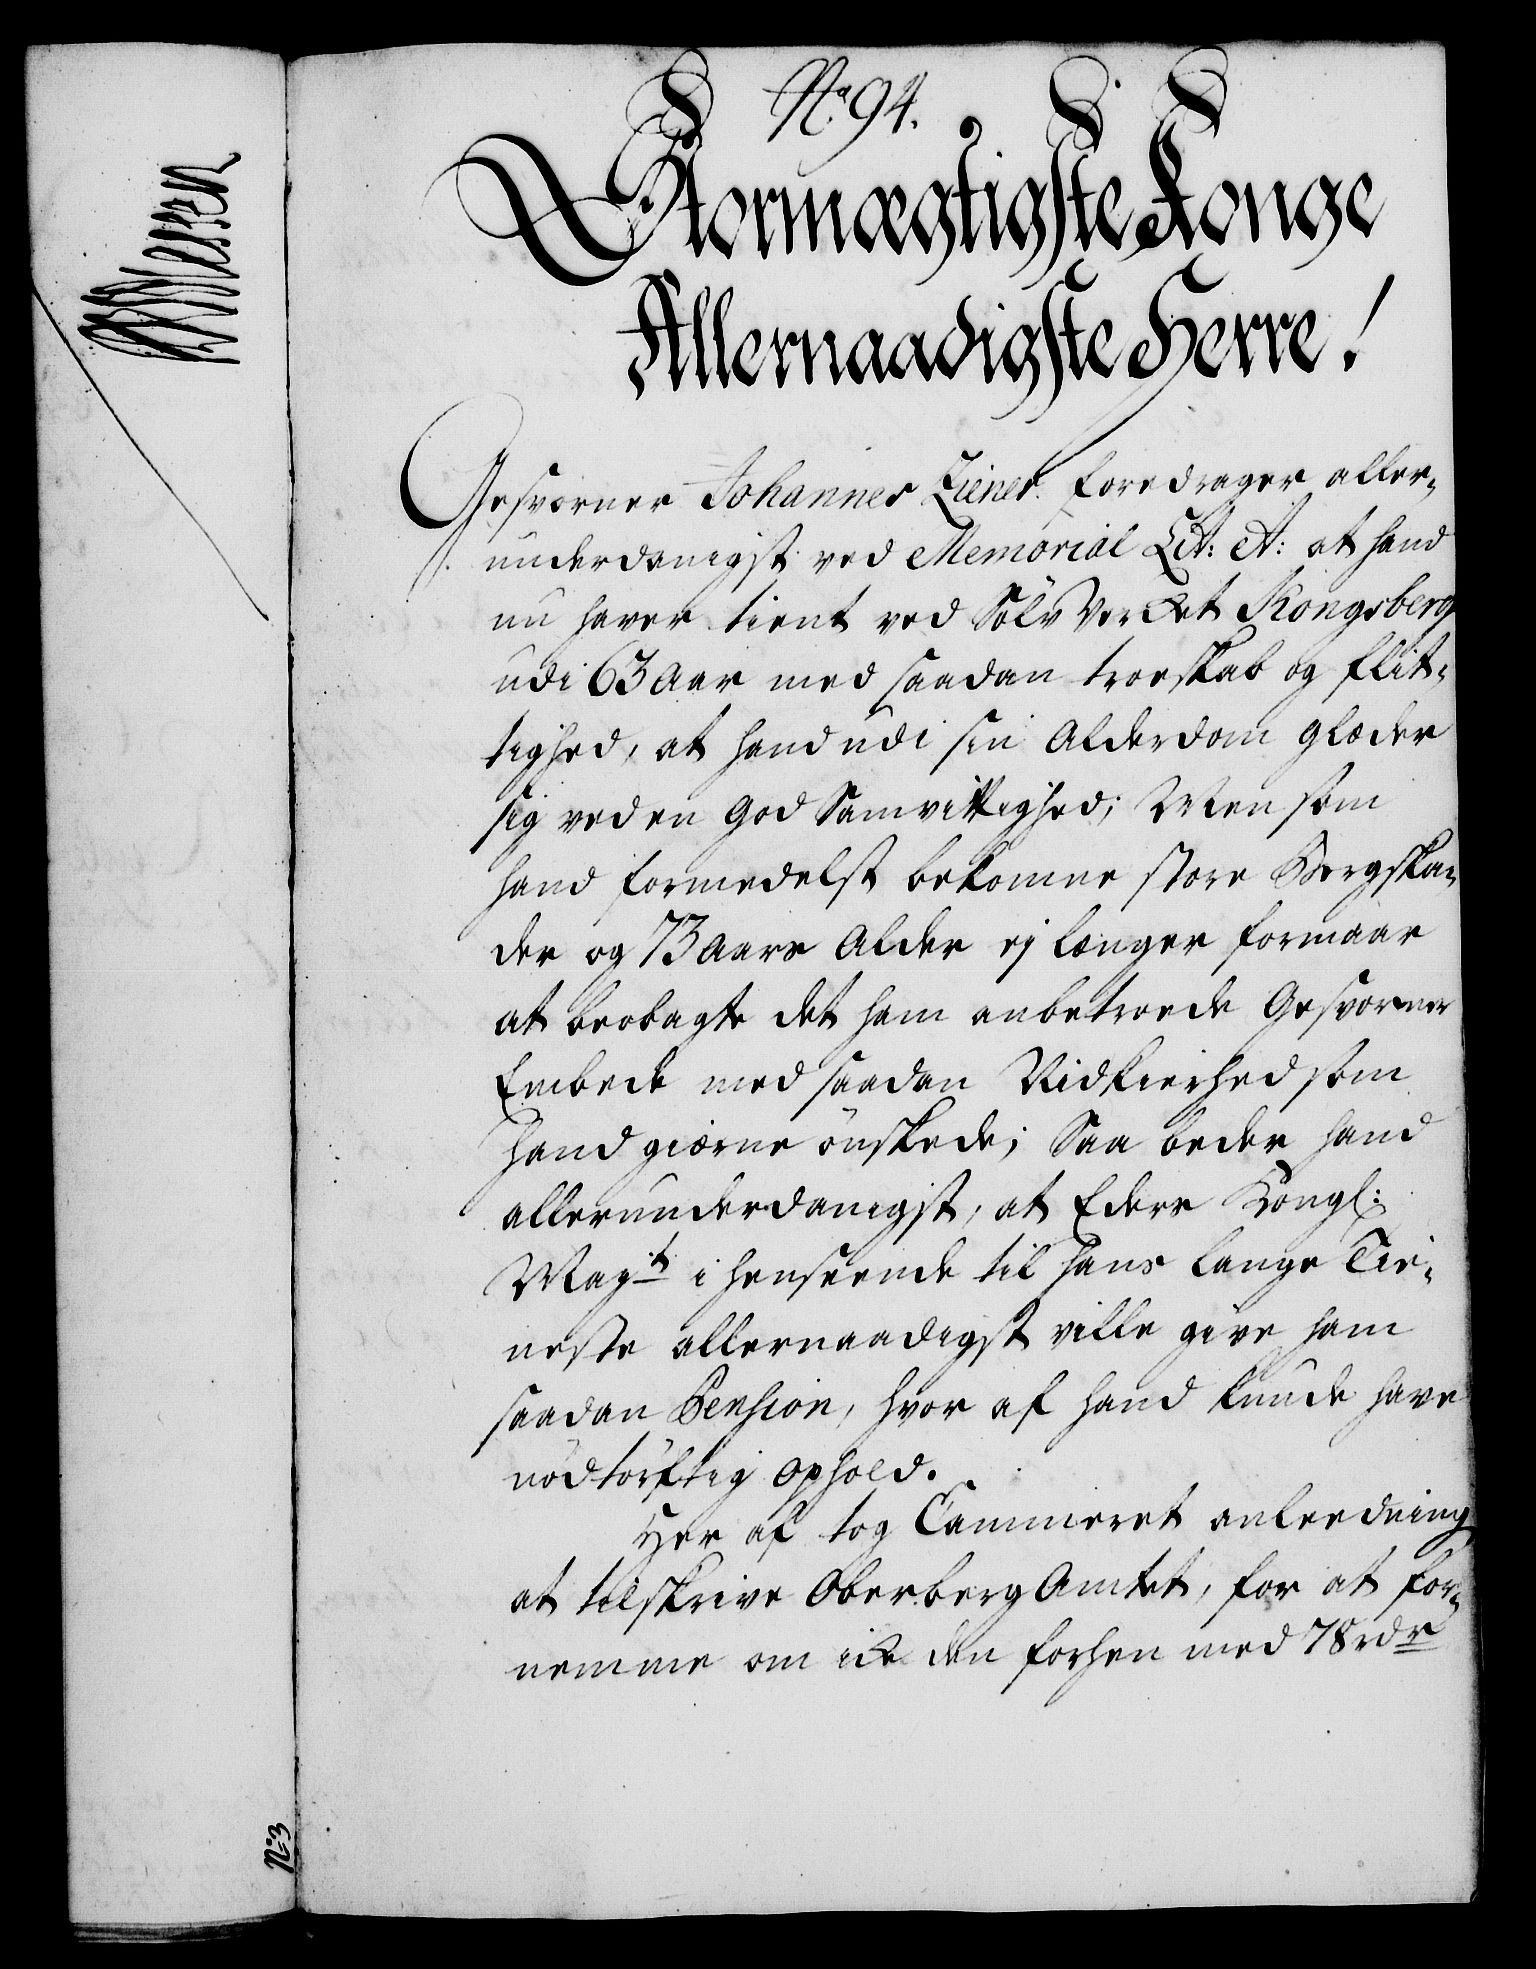 No. 94.
Stormægtigste Konge
Allernaadigste Herre!
Gesvorner Johannes Ziener foredrager aller-
underdanigst ved Memorial Lit: A: at hand
nu haver tient ved Sölv Verket Kongsberg
udi 63 aar med saadan troeskab og flit-
tighed, at hand udi sin Alderdom glæder
sig ved en god Samvittighed; Men som
hand formedelst bekomne store Bergska-
der og 73 aars Alder ej længer formaar
at beobagte det ham anbetroede Gesvorner
Embede med saadan Nidkierhed som
hand giærne önskede; Saa beder hand
allerunderdanigst, at Eders Kongl:
Mayt i henseende til hans lange Tie-
neste allernaadigst ville give ham
saadan Pension, hvor af hand kunde have
nödtörftig ophold.
Her af tog Cammeret anleedning
at tilskrive OberbergAmtet, for at for-
nemme om icke den forhen med 78 rdr
No 3